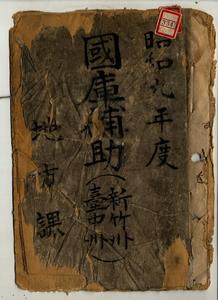 昭和九年度
國庫補助（新竹州
臺中州）
地方課